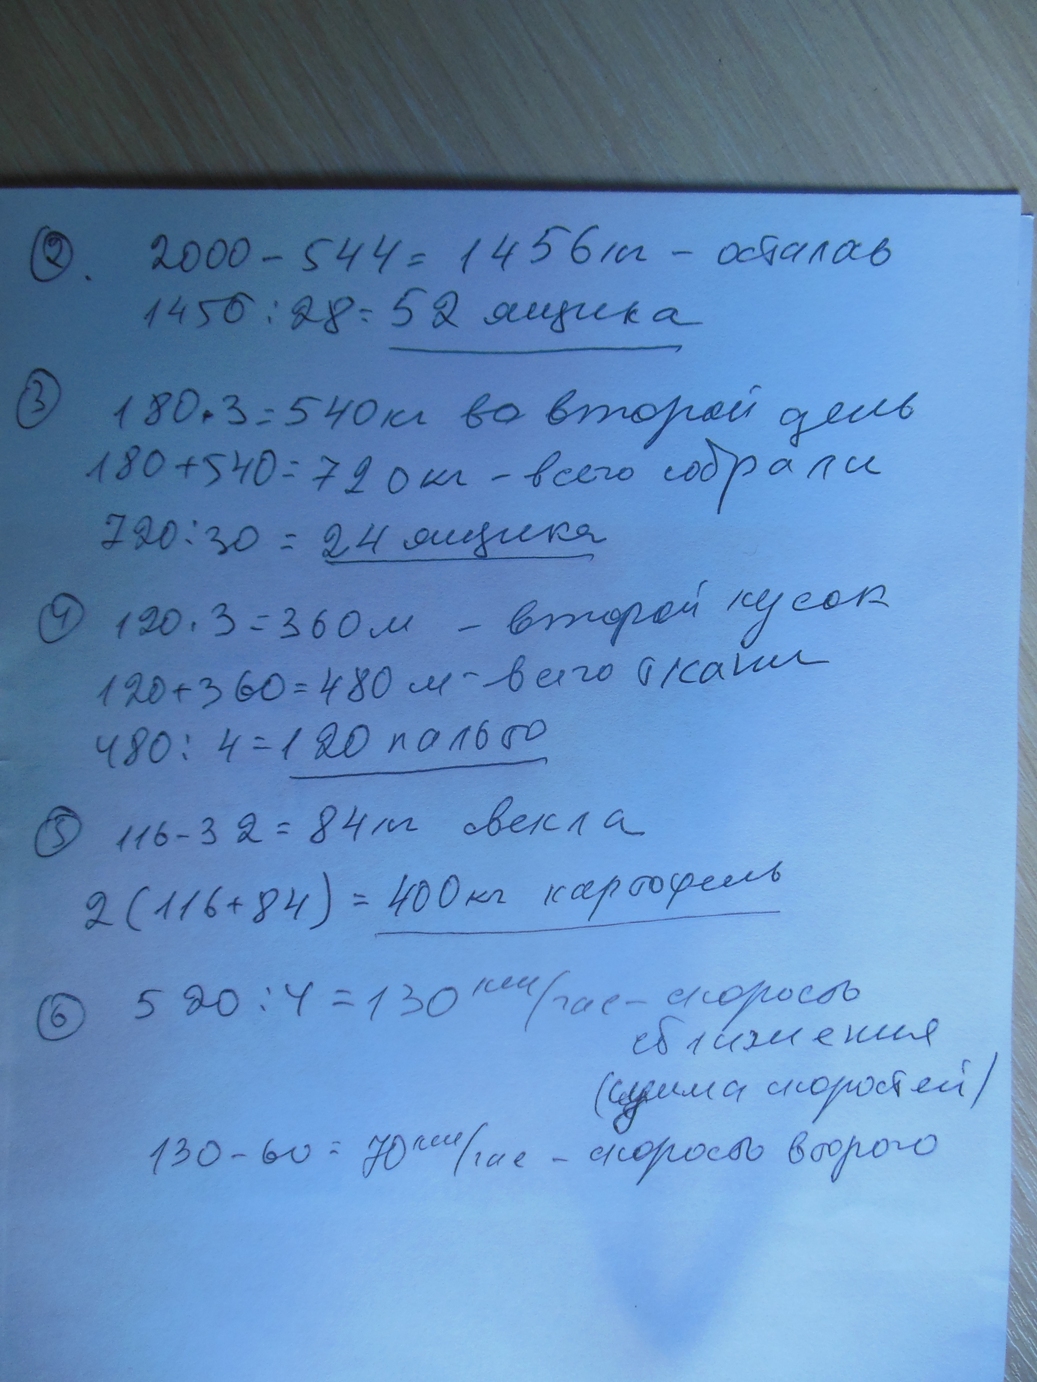 2. 2000 - 544 = 1456 кг - осталав
1456 : 28 = 52 ящика
3 180 · 3 = 540 кг во второй день
180 + 540 = 720 кг - всего собрали
720 : 30 = 24 ящика
4 120 · 3 = 360 м - второй кусок
120 + 360 = 480 м - всего ткани
480 : 4 = 120 пальто
5 116 - 32 = 84 кг свекла
2 (116 + 84) = 400 кг картофель
6 520 : 4 = 130 км/час - скорость
сближения
(сумма скоростей)
130 - 60 = 70 км/час - скорость второго